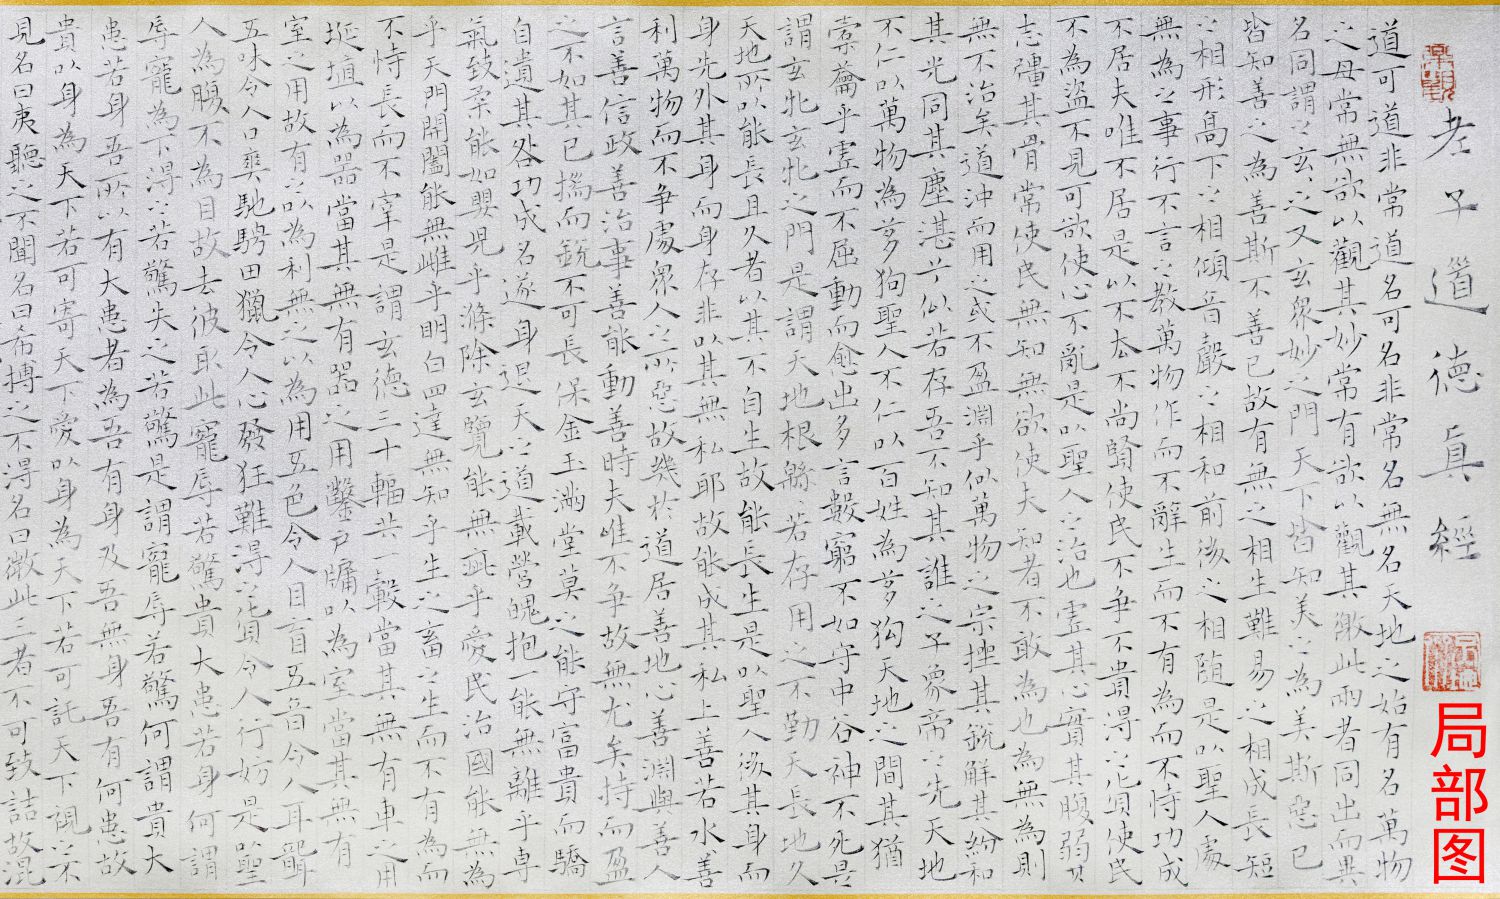 老子道德真經
道可道非常道名可名非常名無名天地之始有名萬物
之母常無欲以觀其妙常有欲以觀其徼此兩者同出而異
名同謂之玄〻之又玄衆妙之門天下皆知美之為美斯惡已
皆知善之為善斯不善已故有無之相生難易之相成長短
之相形髙下之相傾音聲之相和前後之相隨是以聖人處
無為之事行不言之教萬物作而不辭生而不有為而不恃功成
不居夫唯不居是以不去不尚賢使民不爭不貴得之貨使民
不為盜不見可欲使心不亂是以聖人之治也虛其心實其腹弱其
志彊其骨常使民無知無欲使夫知者不敢為也為無為則
無不治矣道沖而用之或不盈淵乎似萬物之宗挫其銳解其紛和
其光同其塵湛兮似若存吾不知其誰之子象帝之先天地
不仁以萬物為芻狗聖人不仁以百姓為芻狗天地之間其猶
橐籥乎虛而不屈動而愈出多言數窮不如守中谷神不死是
謂玄牝玄牝之門是謂天地根緜〻若存用之不勤天長地久
天地所以能長且久者以其不自生故能長生是以聖人後其身而
身先外其身而身存非以其無私耶故能成其私上善若水善
利萬物而不爭處衆人之所惡故幾於道居善地心善淵與善人
言善信政善治事善能動善時夫唯不爭故無尤矣持而盈
之不如其已揣而銳不可長保金玉滿堂莫之能守富貴而驕
自遺其咎功成名遂身退天之道載營魄抱一能無離乎專
氣致柔能如嬰兒乎滌除玄覽能無疵乎愛民治國能無為
乎天門開闔能無雌乎明白四達無知乎生之畜之生而不有為而
不恃長而不宰是謂玄德三十輻共一轂當其無有車之用
埏埴以為器當其無有器之用鑿戶牖以為室當其無有
室之用故有之以為利無之以為用五色令人目盲五音令人耳聾
五味令人口爽馳騁田獵令人心發狂難得之貨令人行妨是以聖
人為腹不為目故去彼取此寵辱若驚貴大患若身何謂
辱寵為下得之若驚失之若驚是謂寵辱若驚何謂貴大
患若身吾所以有大患者為吾有身及吾無身吾有何患故
貴以身為天下若可寄天下愛以身為天下若可託天下視之不
見名曰夷聽之不聞名曰希搏之不得名曰微此三者不可致詰故混
局部图